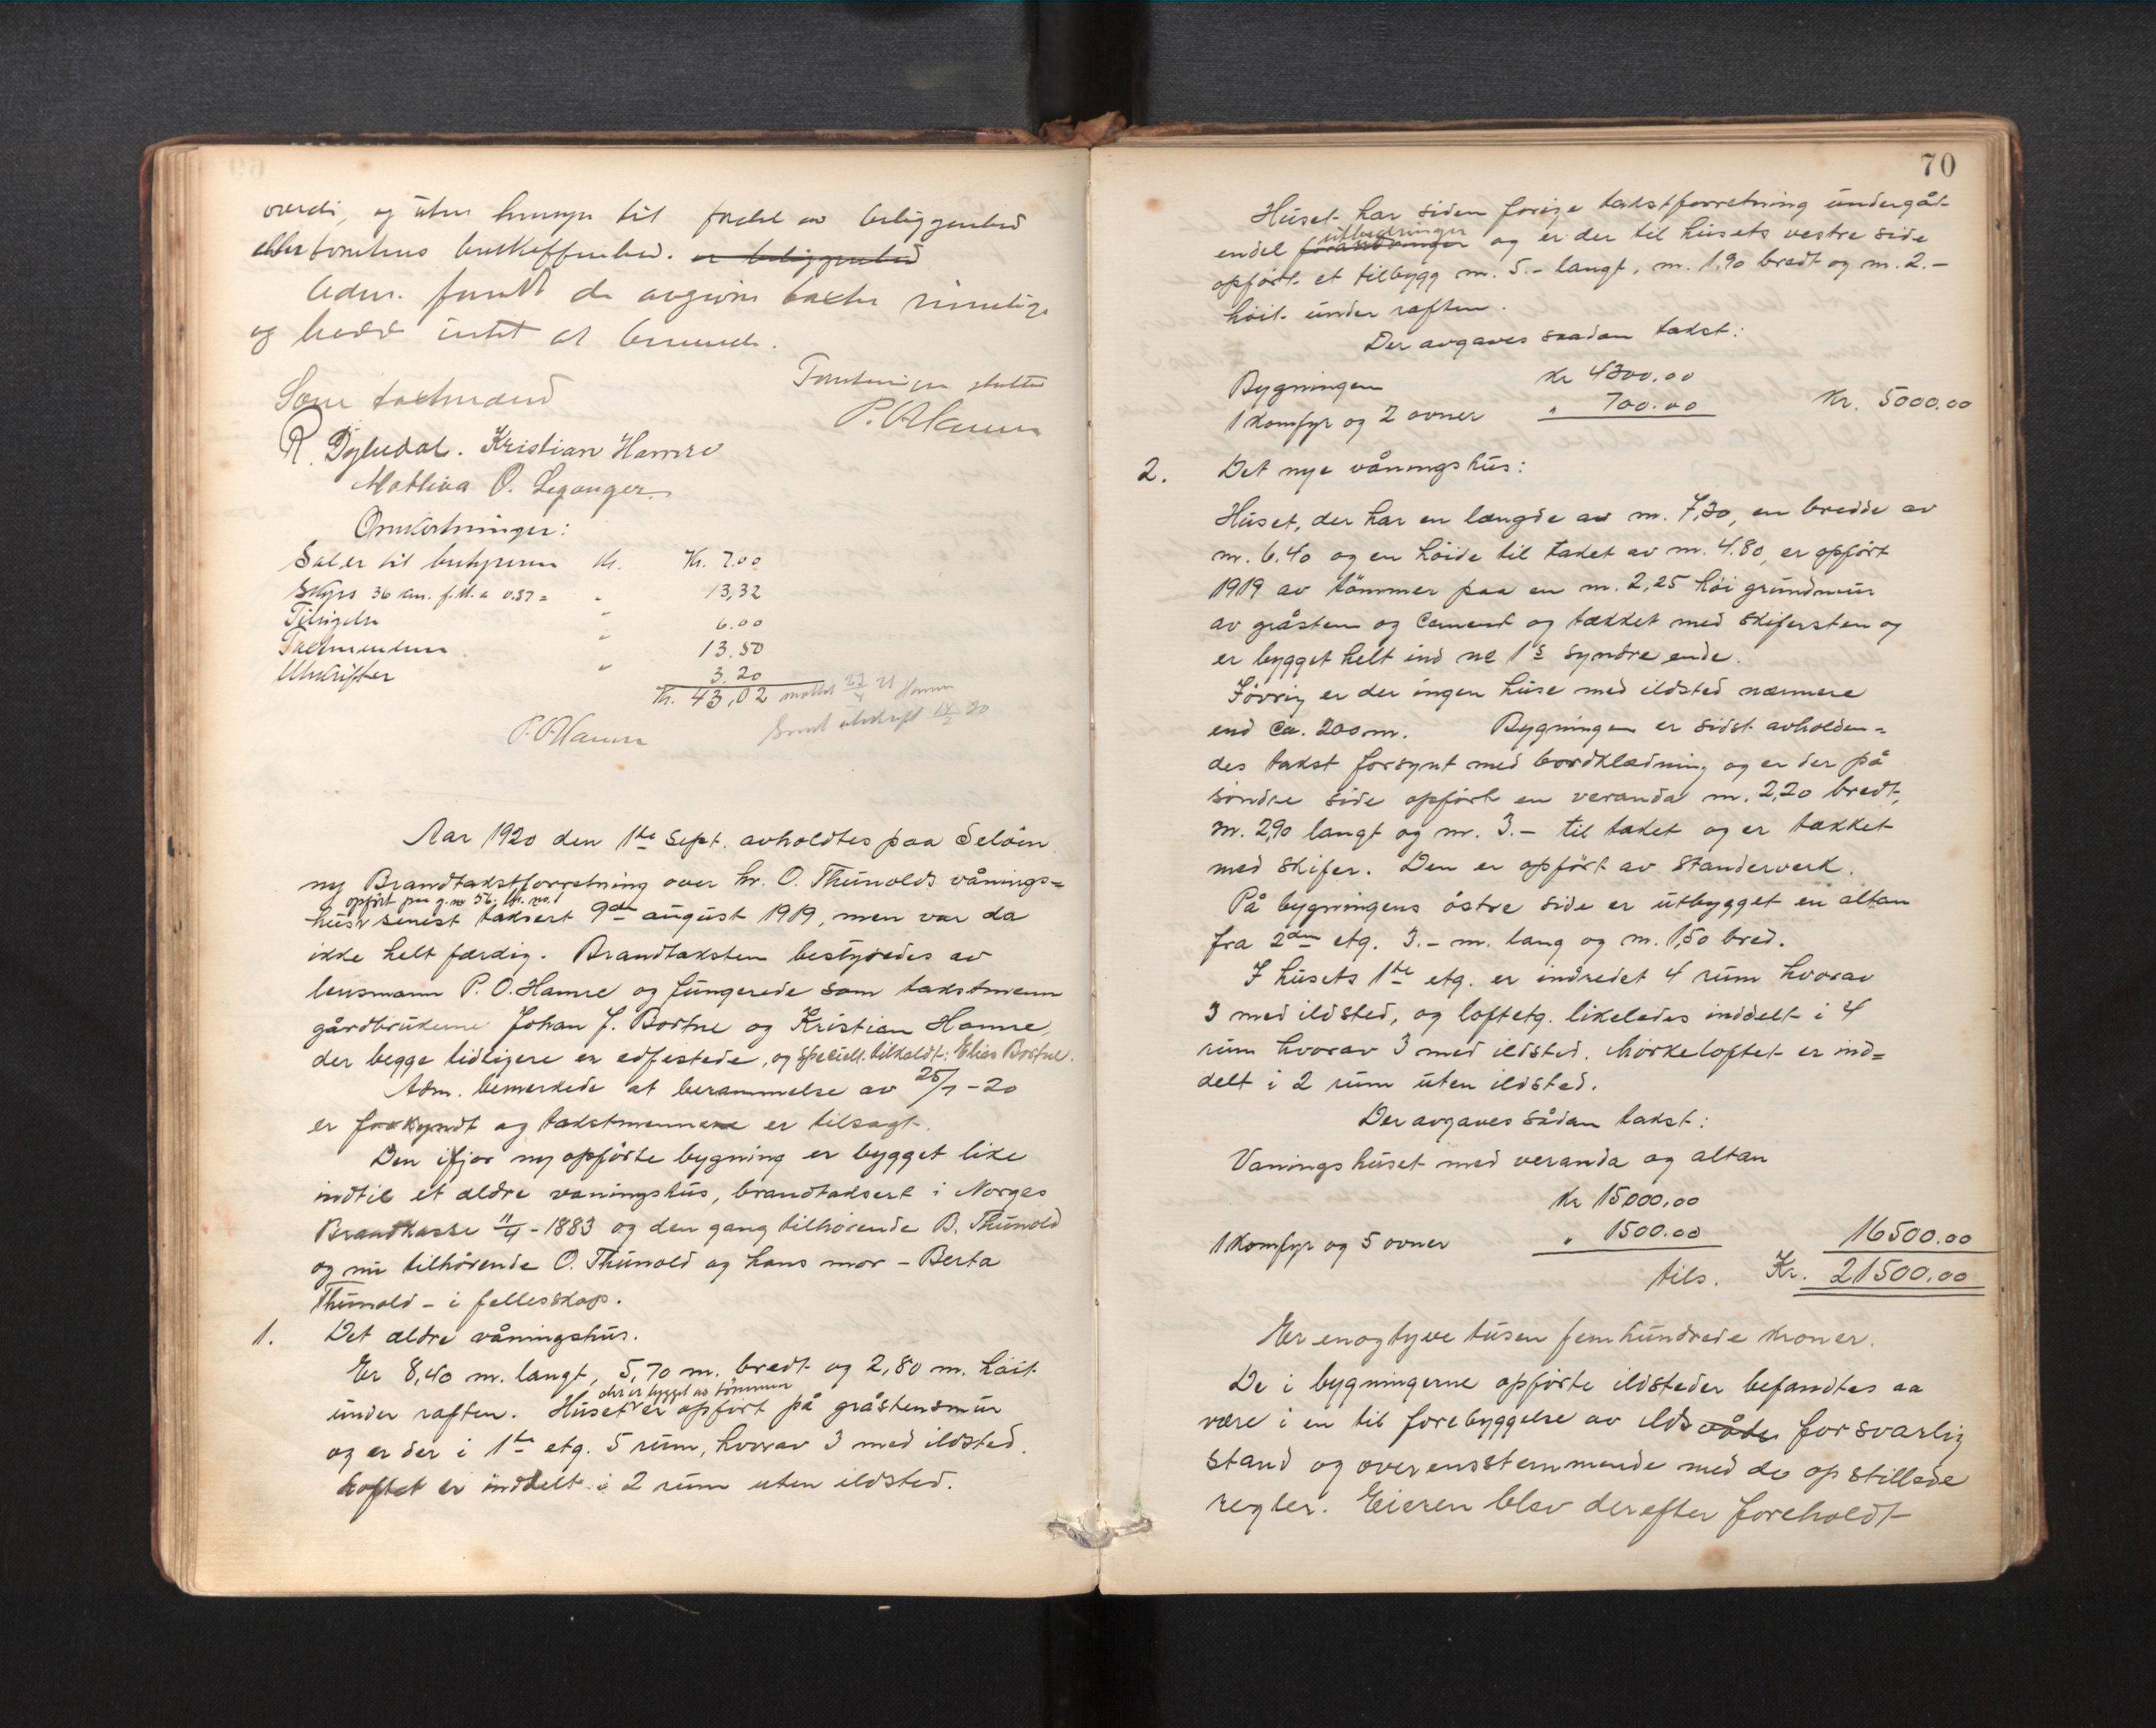 verdi, og uten hensyn til fordel av beliggenhed
eller tomtens beskaffenhed. er beliggenhed
Adm. fandt de avgivne takster rimelige
og hadde intet at bemerke.
Forretningen sluttet
P. O. Hamre
Som takstmænd
R. Dyluedal. Kristian Hamre
Mathias O. Leganger
Omkostninger:
Salær til bestyreren Kr. Kr. 7.00
Skyds 36 km. f.M. a 0.37 = " 13,32
Tilsigelse " 6.00
Takstmendene " 13.50
Utskrifter " 3.20
Kr. 43,02 mottat 27/4 21 Hamre
Sendt utskrift 14/2 20
P. O. Hamre
Aar 1920 den 1ste sept. avholdtes paa Seløin
ny Brandtakstforretning over hr. O. Thunolds vånings=
opført paa g.no 56. br. no. 1
hus senest taksert 9de august 1919, men var da
ikke helt færdig. Brandtaksten bestyredes av
lensmann P. O. Hamre og fungerede som takstmenn
gårdbrukerne Johan J. Bortne og Kristian Hamre,
der begge tidligere er edfestede, og specielt tilkaldt: Elias Bortne.
Adm. bemerkede at berammelse av 25/7 - 20
er forkyndt og takstmennene er tilsagt.
Den ifjor ny opførte bygning er bygget like
indtil et ældre vaningshus, brandtaksert i Norges
Brandkasse 11/4 - 1883 og den gang tilhørende B. Thunold
og nu tilhørende O. Thunold og hans mor - Berta
Thunold - i fellesskap.
1. Det ældre våningshus.
Er 8,40 m. langt, 5,70 m. bredt og 2,80 m. høit
der er bygget av tømmer
under raften. Huset er opført på gråstensmur
og er der i 1ste etg. 5 rum, hvorav 3 med ildsted.
Loftet er inddelt i 2 rum uten ildsted.
70
Huset har siden forige takstforretning undergåt
utbedringer
endel forandringer og er der til husets vestre side
opført et tilbygg m. 5.- langt, m. 1,90 bredt og m. 2.-
høit under raften.
Der avgaves saadan takst:
Bygningen Kr 4300.00
1 komfyr og 2 ovner " 700.00 Kr. 5000.00
2. Det nye våningshus:
Huset, der har en længde av m. 7,30, en bredde av
m. 6.40 og en høide til taket av m. 4.80, er opført
1919 av tømmer paa en m. 2,25 høi grundmur
av gråsten og cement og tækket med skifersten og
er bygget helt ind no 1s syndre ende.
Iøvrig er der ingen huse med ildsted nærmere
end ca. 200 m. Bygningen er sidst avholden=
des takst forsynt med bordklædning og er der på
søndre side opført en veranda m. 2,20 bredt,
m. 2,90 langt og m. 3.- til taket og er tækket
med skifer. Den er opført av standerverk.
På bygningens østre side er utbygget en altan
fra 2den etg. 3.- m. lang og m. 1,50 bred.
I husets 1ste etg. er indredet 4 rum hvorav
3 med ildsted, og loftetg. likeledes inddelt i 4
rum hvorav 3 med ildsted. Mørkeloftet er ind=
delt i 2 rum uten ildsted.
Der avgaves sådan takst:
Vaningshuset med veranda og altan
Kr 15000.00
1 komfyr og 5 ovner " 1500.00 16500.00
tils. Kr. 21500.00
Er enogtyve tusen femhundrede kroner.
De i bygningerne opførte ildsteder befandtes aa
være i en til forebyggelse av ildsvåde forsvarlig
stand og overensstemmende med de opstillede
regler. Eieren blev derefter foreholdt